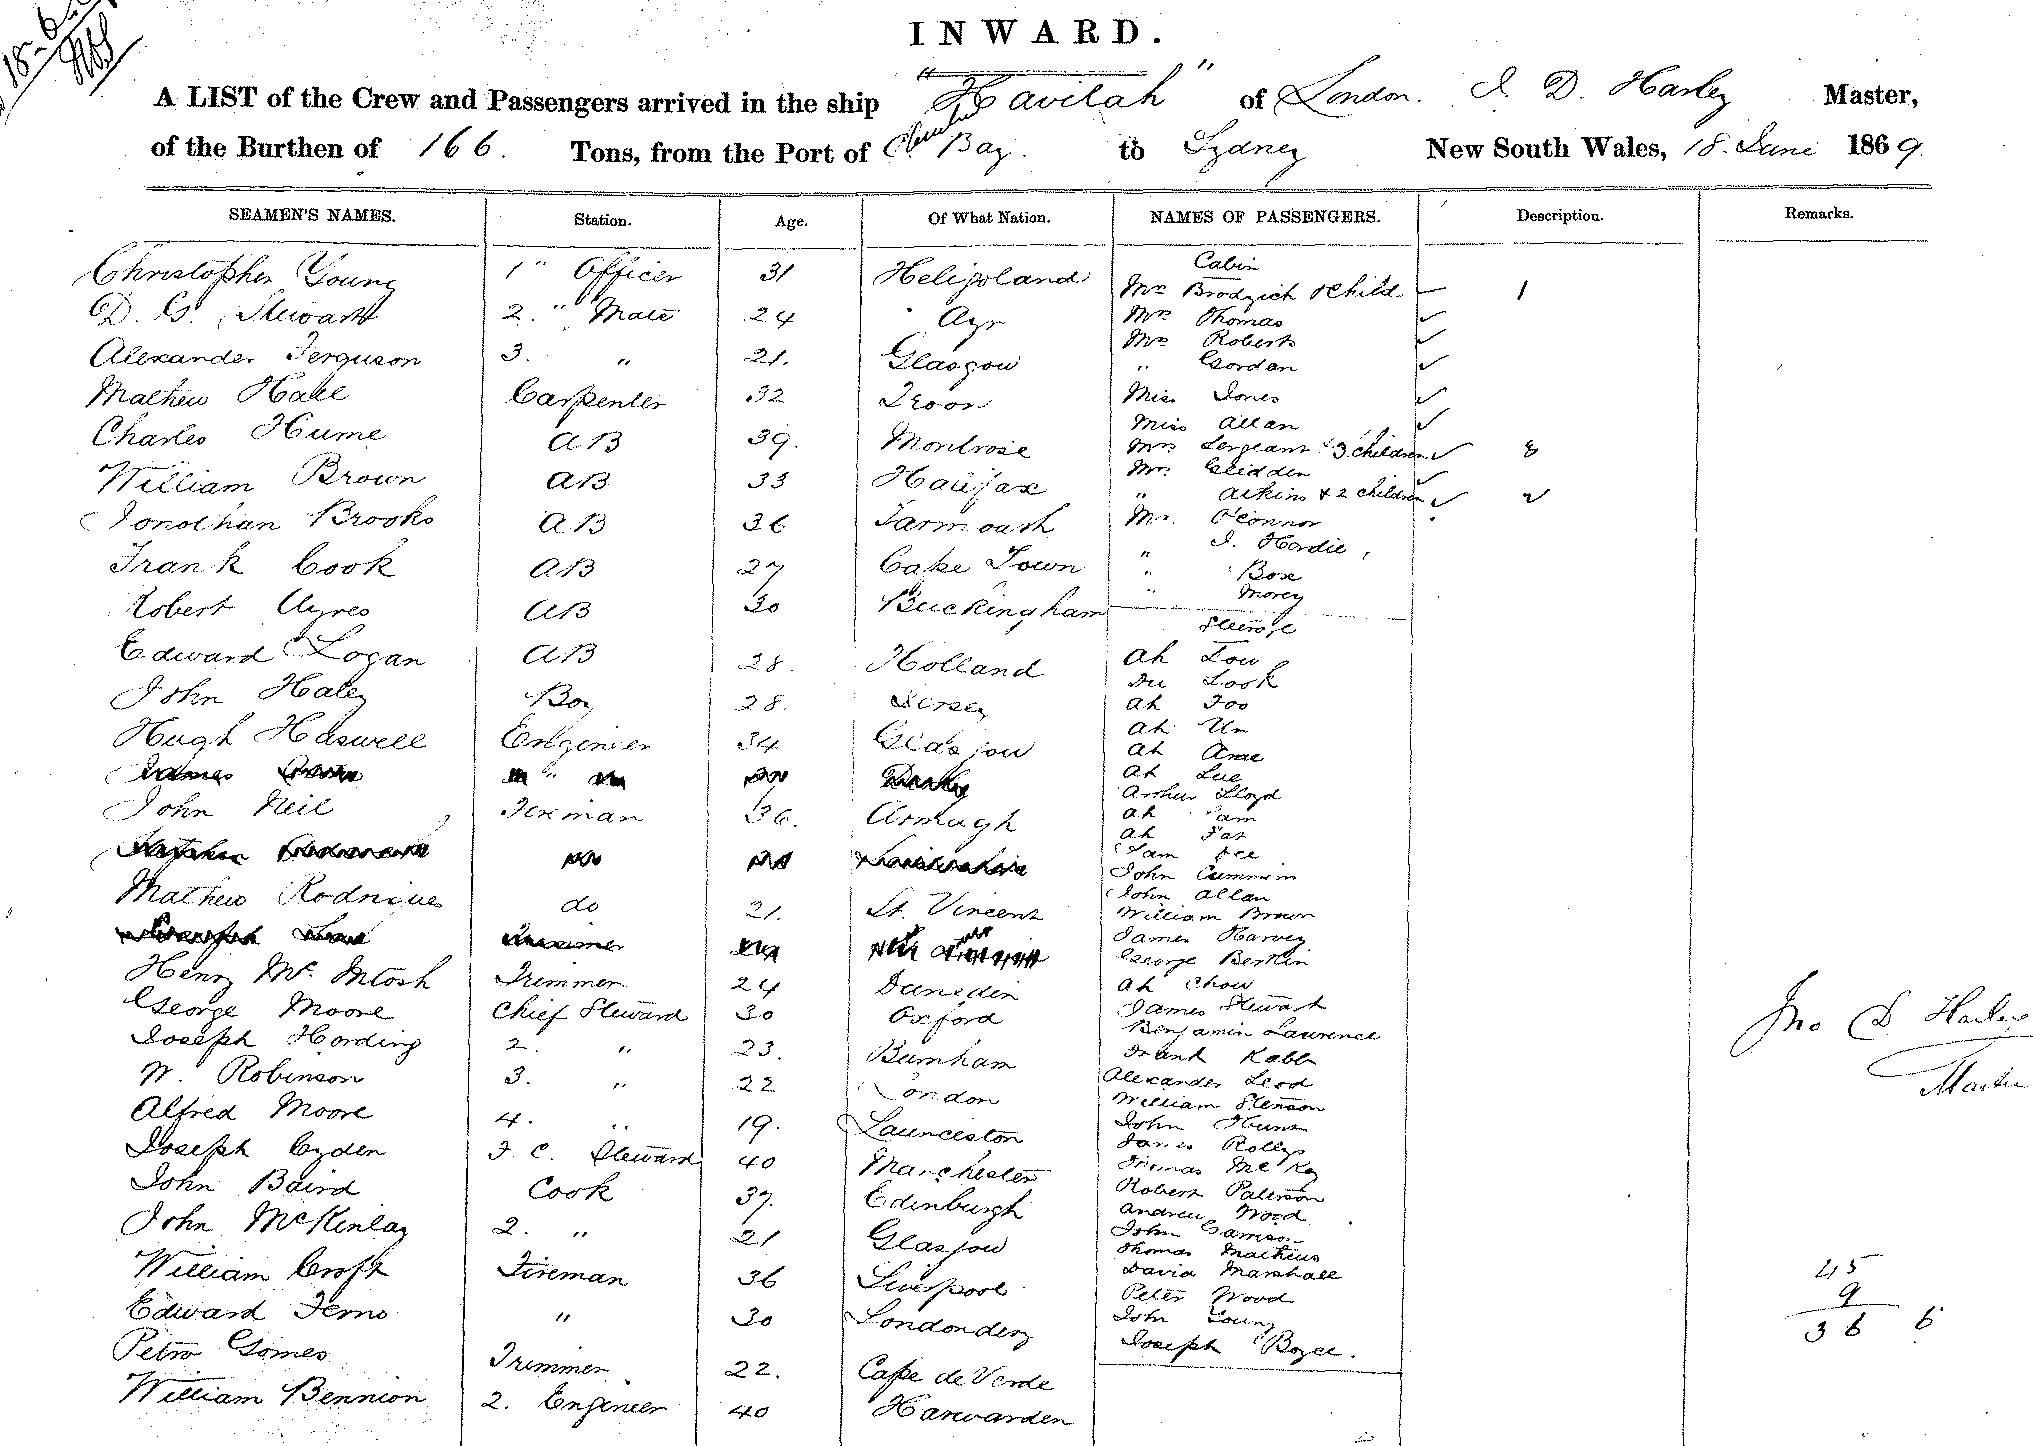 18-6
INWARD.
A LIST of the Crew and Passengers arrived in the ship "Havilah" of London. J. D. Harley Master,
of the Burthen of 166. Tons, from the Port of Bay. to Sydney New South Wales, 18. June 1869.
SEAMEN'S NAMES. Station. Age. Of What Nation. NAMES OF PASSENGERS. Description. Remarks.
Christopher Young 1" Officer 31 Heligoland
D. G. Stewart 2." Mate 24 Ayr
Alexander Ferguson 3. " 21. Glasgow
Mathew Hall Carpenter 32 Troon
Charles Hume AB 39. Montrose
William Brown AB 33 Halifax
Jonothan Brooks AB 36 Yarmouth
Frank Cook AB 27 Cape Town
Robert Ayres AB 30 Buckingham
Edward Logan AB 28. Holland
John Haley Boy 28. Jersey
Hugh Haswell Engineer 34 Glasgow
James "
John Neil Fireman 36. Armagh
Mathew Rodrigues do 21. St. Vincent
Henry McIntosh Trimmer 24 Dunedin
George Moore Chief Steward 30 Oxford
Joseph Harding 2. " 23. Burnham
W. Robinson 3. " 22 London
Alfred Moore 4. " 19. Launceston
Joseph Cyden F. C. Steward 40 Manchester
John Baird Cook 37. Edinburgh
John McKinlay 2. " 21 Glasgow
William Croft Fireman 36 Liverpool
Edward Ferns " 30 Londonderry
Petro Gomes Trimmer 22. Cape de Verde
William Bennion 2. Engineer 40 Harwarden
Cabin
Mrs Brodzich & Child 1
Mrs Thomas
Mrs Roberts
" Gordon
Miss Jones
Miss Allan
Mrs Sergeant & 3 children 3
Mrs Glidden
" Aikins & 2 children 2
Mr. O'Connor
" J. Hardie
" Box
" Morey
Steerage
Ah Low
Look
Ah Foo
Ah Un
Ah Ame
Ah Lue
Arthur Lloyd
Ah Sam
Ah Pat
Sam Lee
John Cummin
John Allan
William Brown
James Harvey
George Berklin
Ah Chow
James Stewart
Benjamin Laurence
Frank Rabb
Alexander Leod
William Stenson
John Hunt
James Rollys
Thomas McKay
Robert Paterson
Andrew Wood
John Samson
Thomas Mathews
David Marshall
Peter Wood
John Young
Joseph Boyce.
Jno D Harley
Master
45
9
36 6